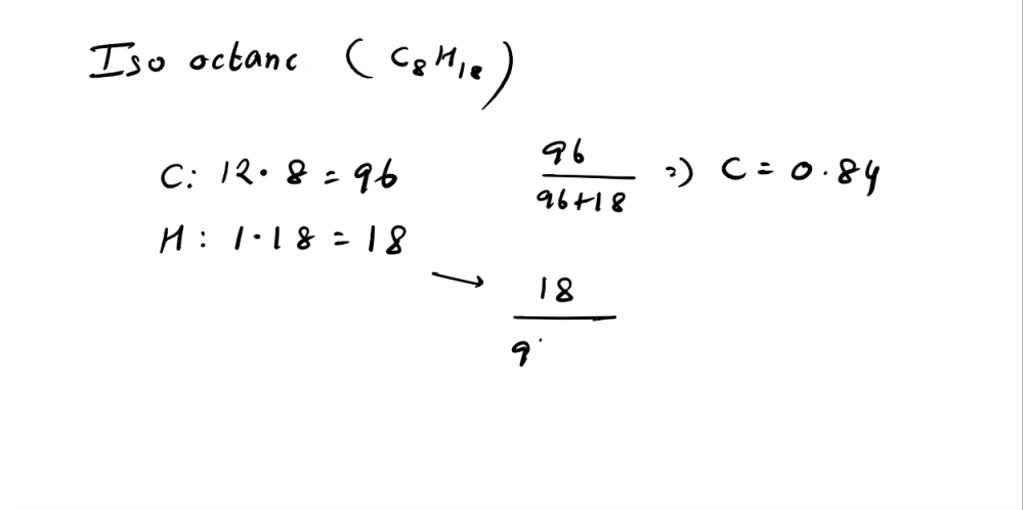 Iso octanc (C₈H₁₈)
C: 12·8=96
H: 1·18=18
96
96+18
=) C=0.84
→ 18
9